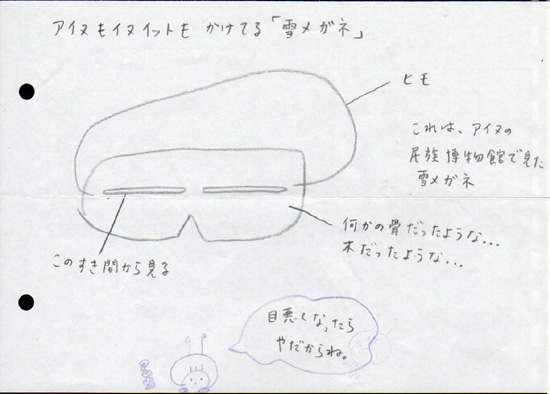 アイヌもイヌイットも かけてる「雪メガネ」
ヒモ
これは、アイヌの
民族博物館で見た
雪メガネ
何かの骨だったような...
木だったような...
このすき間から見る
目悪くなったら
やだからね。